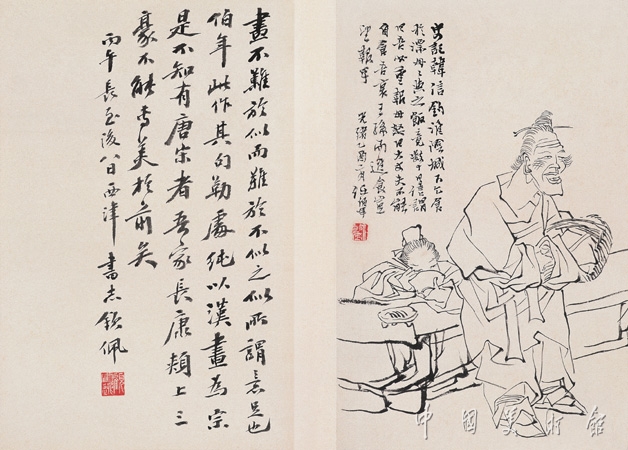 史記韓信釣淮陰城下乞食
於漂母々與之飯竟數十日信謂
曰吾必重報母怒曰大丈夫不能
自食吾哀王孫而進食豈
望報乎 光緒乙酉二月任伯年
畫不難於似而難於不似之似所謂意足也
伯年此作其勾勒處純以漢畫為宗
是不知有唐宋者吾家長康頰上三
豪不能專美於前矣
丙午長至後八日西津書志欽佩
中國美術館